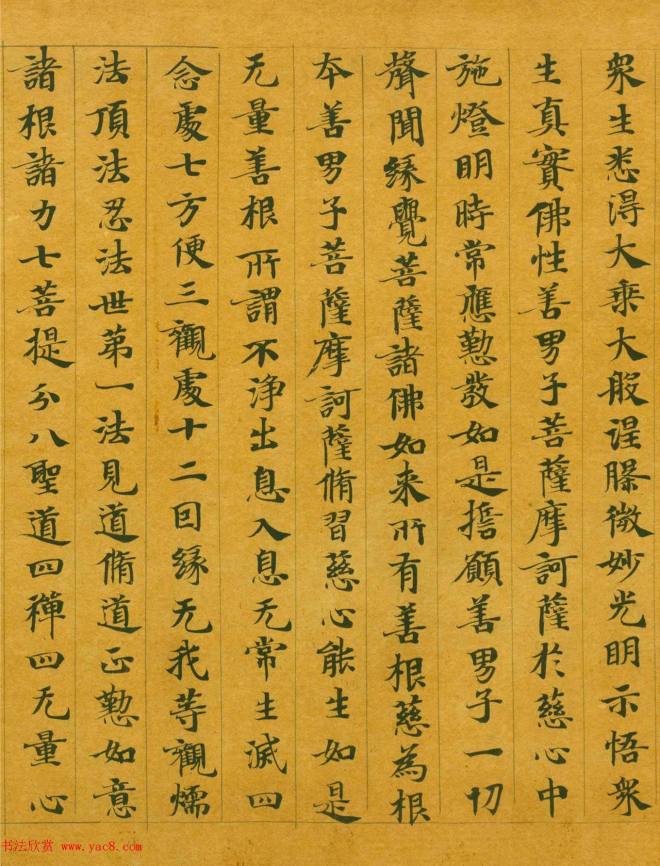 衆生悉得大乗大般涅槃微妙光明示悟衆
生真實佛性善男子菩薩摩訶薩於慈心中
施燈明時常應懃發如是擔願善男子一切
聲聞緣覺菩薩諸佛如来所有善根慈為根
本善男子菩薩摩訶薩脩習慈心能生如是
无量善根所謂不浄出息入息无常生滅四
念處七方便三觀處十二回緣无我等觀燸
法頂法忍法世第一法見道脩道正懃如意
諸根諸力七菩提分八聖道四禪四无量心
书法欣赏 www.yac8.com